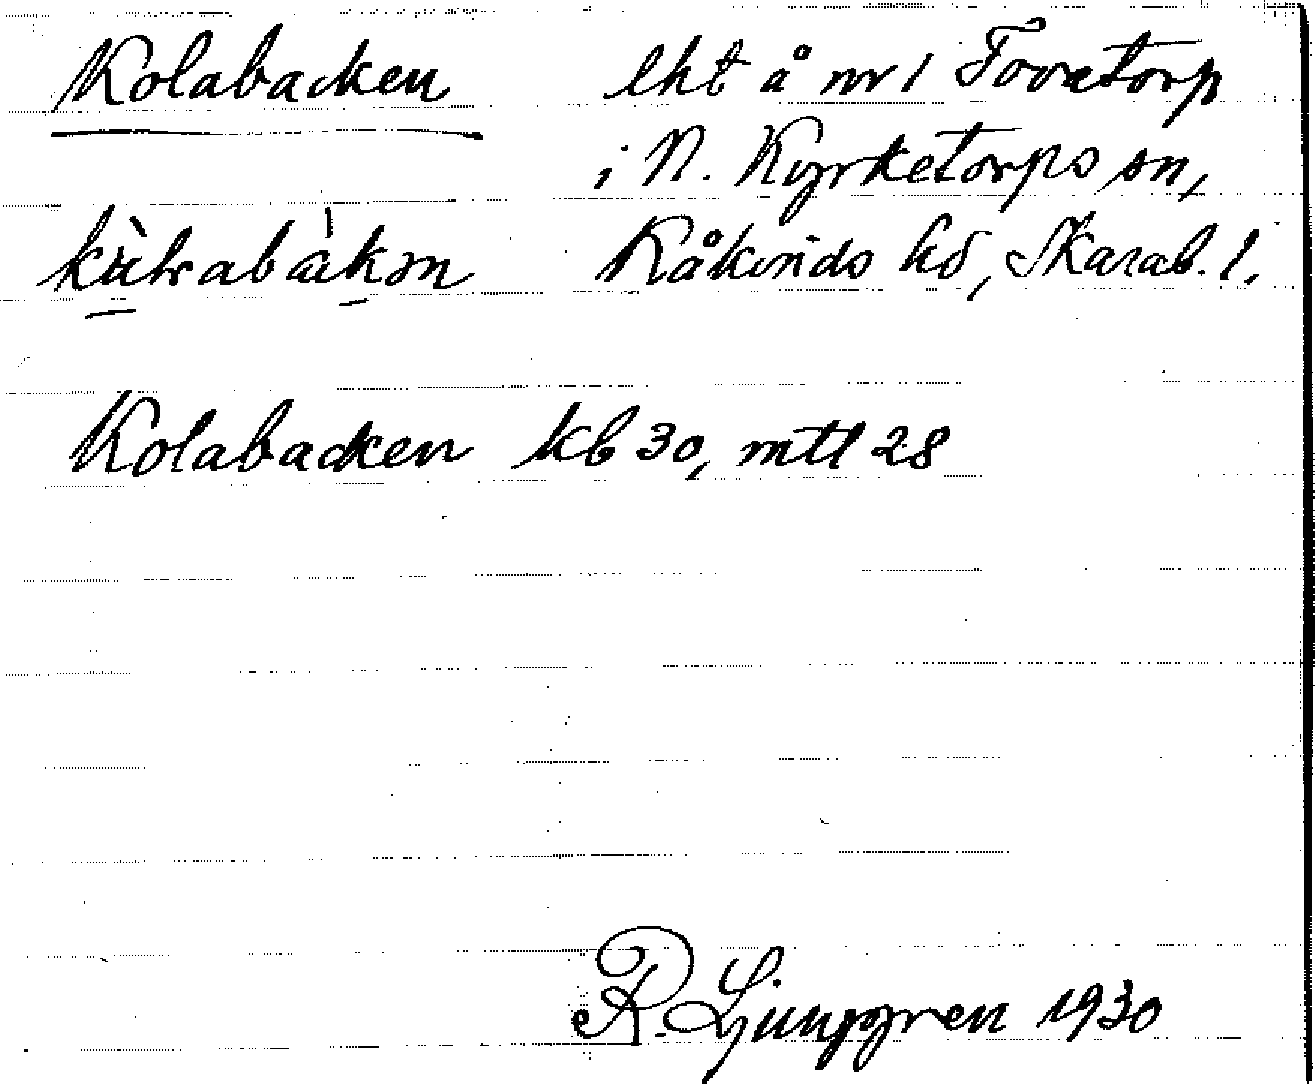 Kolabacken lht å nr 1 Tovatorp
i N. Kyrketorps sn,
Kåkinds hd, Skarab. l.
Kolabacken kb 30, mtl 28
R. Ljunggren 1930